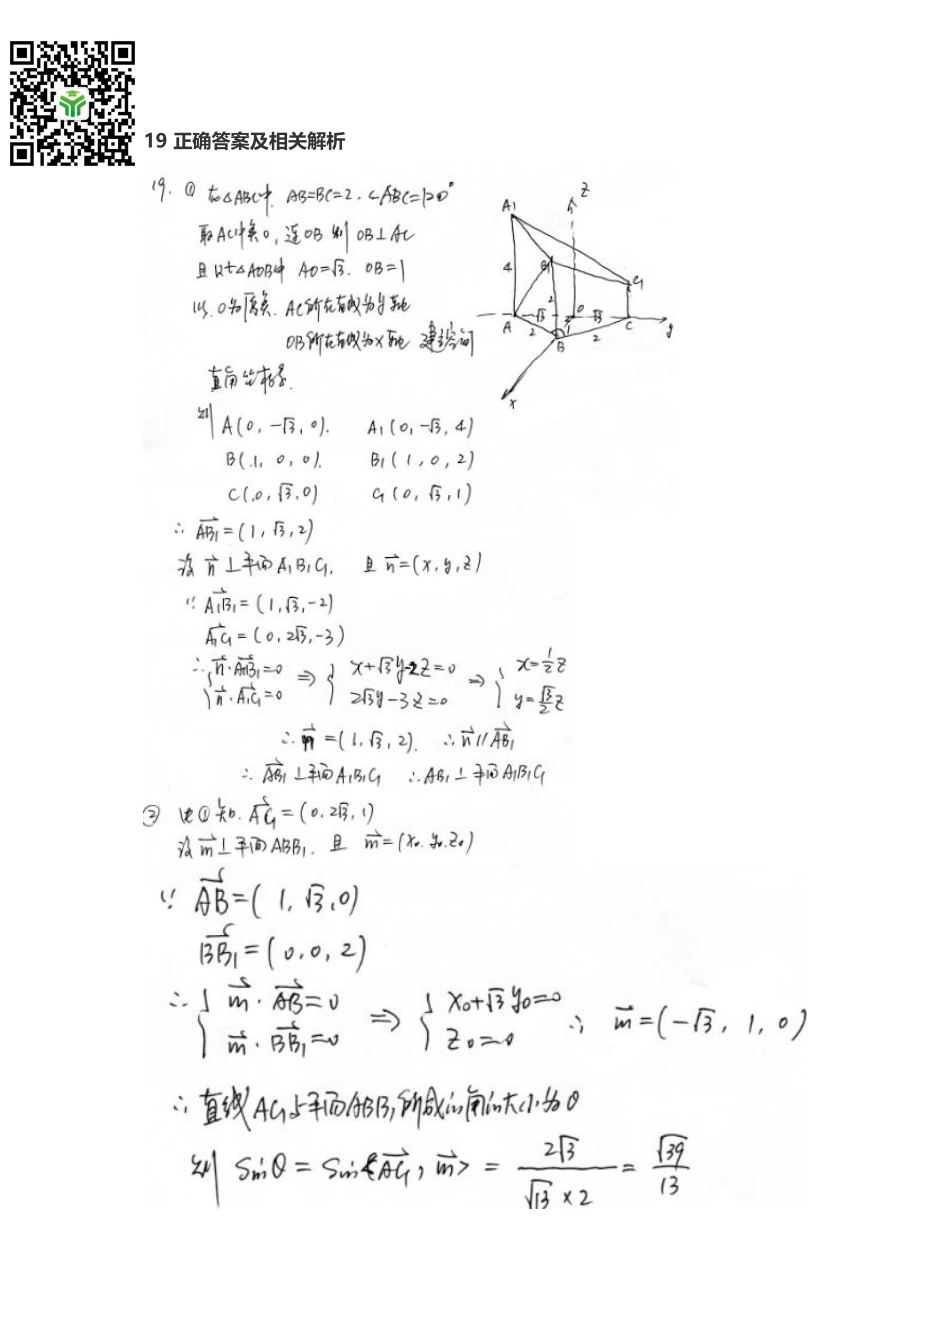 19 正确答案及相关解析
19. ① 在△ABC中, AB=BC=2, ∠ABC=120°
取AC中点O, 连OB 则 OB⊥AC
且Rt△AOB中 AO=√3, OB=1
以O为原点, AC所在直线为y轴
OB所在直线为x轴 建立空间
直角坐标系.
则 A(0, -√3, 0). A₁(0, -√3, 4)
B(1, 0, 0). B₁(1, 0, 2)
C(0, √3, 0) C₁(0, √3, 1)
∴ AB₁=(1, √3, 2)
设 n⊥平面A₁B₁C₁, 且 n=(x, y, z)
∵ A₁B₁=(1, √3, -2)
A₁C₁=(0, 2√3, -3)
∴ { n·A₁B₁=0 n·A₁C₁=0 ⇒ { x+√3y-2z=0 2√3y-3z=0 ⇒ { x=1/2z y=√3/2z
∴ n=(1, √3, 2). ∴ n∥AB₁
∴ AB₁⊥平面A₁B₁C₁ ∴ AB₁⊥平面A₁B₁C₁
② 由①知. AC₁=(0, 2√3, 1)
设 m⊥平面ABB₁. 且 m=(x₀, y₀, z₀)
∵ AB=(1, √3, 0)
BB₁=(0, 0, 2)
∴ { m·AB=0 m·BB₁=0 ⇒ { x₀+√3y₀=0 z₀=0 ∴ m=(-√3, 1, 0)
∴ 直线AC₁与平面ABB₁所成的角的大小为θ
则 sinθ = sin<AC₁, m> = 2√3/(√13×2) = √39/13
A₁
z
B₁
4
C₁
2
√3
O
√3
A
2
1
B
2
C
y
x